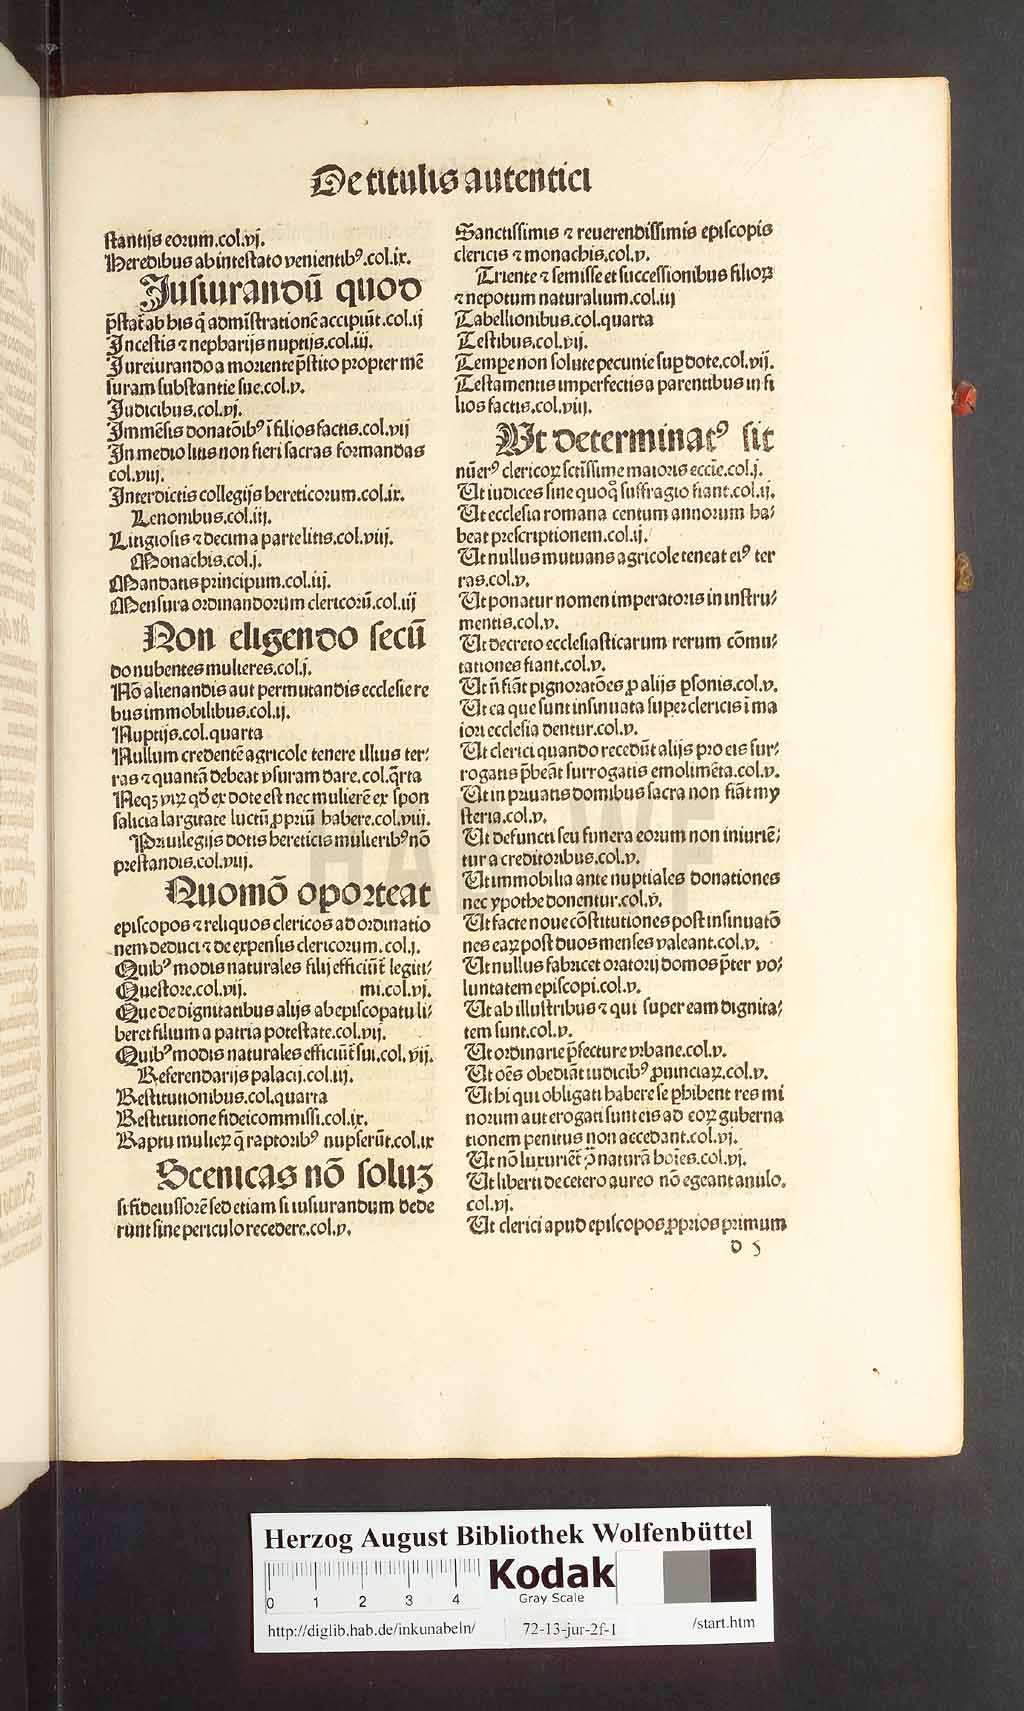 De titulis autentici
stantijs eorum.col.vj.
Heredibus ab intestato venientibꝰ.col.ix.
Jusiurandū quod
p̄stat᷑ ab his q̄ admīstrationē accipiūt.col.ij
Incestis ⁊ nepharijs nuptijs.col.iij.
Iureiurando a moriente p̄stito propter mē
suram substantie sue.col.v.
Iudicibus.col.vj.
Immēsis donatōibꝰ ī filios factis.col.vij
In medio litis non fieri sacras formandas
col.viij.
Interdictis collegijs hereticorum.col.ix.
Lenonibus.col.iij.
Litigiosis ⁊ decima parte litis.col.viij.
Monachis.col.j.
Mandatis principum.col.iij.
Mensura ordinandorum clericorū.col.iij
Non eligendo secū
do nubentes mulieres.col.j.
Nō alienandis aut permutandis ecclesie re
bus immobilibus.col.ij.
Nuptijs.col.quarta
Nullum credentē agricole tenere illius ter⸗
ras ⁊ quantā debeat vsuram dare.col.q̄rta
Neqꝫ viꝝ qd̓ ex dote est nec mulierē ex spon
salicia largitate luctū ꝓpriū habere.col.viij.
Priuilegijs dotis hereticis mulieribꝰ nō
prestandis.col.viij.
Quomō oporteat
episcopos ⁊ reliquos clericos ad ordinatio
nem deduci ⁊ de expensis clericorum.col.j.
Quibꝰ modis naturales filij efficiūt᷑ legiti⸗
Questore.col.vij. mi.col.vj.
Que de dignitatibus alijs ab episcopatu li⸗
beret filium a patria potestate.col.vij.
Quibꝰ modis naturales efficiūt᷑ sui.col.vij.
Referendarijs palacij.col.iij.
Restitutionibus.col.quarta
Restitutione fideicommissi.col.ix.
Raptu mulieꝝ q̄ raptoribꝰ nupserūt.col.ix
Scenicas nō soluꝫ
si fideiussorē sed etiam si iusiurandum dede
runt sine periculo recedere.col.v.
Sanctissimis ⁊ reuerendissimis episcopis
clericis ⁊ monachis.col.v.
Triente ⁊ semisse et successionibus filioꝝ
⁊ nepotum naturalium.col.iij
Tabellionibus.col.quarta
Testibus.col.vij.
Tempe non solute pecunie suꝑ dote.col.vij.
Testamentis imperfectis a parentibus in fi
lios factis.col.viij.
Ut determinatꝰ sit
nūerꝰ clericoꝝ sctīssime maioris eccīe.col.j.
Ut iudices sine quoqͦ suffragio fiant.col.ij.
Ut ecclesia romana centum annorum ha⸗
beat prescriptionem.col.ij.
Ut nullus mutuans agricole teneat eiꝰ ter
ras.col.v.
Ut ponatur nomen imperatoris in instru⸗
mentis.col.v.
Ut decreto ecclesiasticarum rerum cōmu⸗
tationes fiant.col.v.
Ut ñ fiāt pignoratōes ꝓ alijs ꝑsonis.col.v.
Ut ea que sunt insinuata super clericis ī ma
iori ecclesia dentur.col.v.
Ut clerici quando recedūt alijs pro eis sur⸗
rogatis p̄beāt surrogatis emolimēta.col.v.
Ut in priuatis domibus sacra non fiāt my
steria.col.v.
Ut defuncti seu funera eorum non iniuriē⸗
tur a creditoribus.col.v.
Ut immobilia ante nuptiales donationes
nec ypothe donentur.col.v.
Ut facte noue cōstitutiones post insinuatō
nes eaꝝ post duos menses valeant.col.v.
Ut nullus fabricet oratorij domos p̄ter vo⸗
luntatem episcopi.col.v.
Ut ab illustribus ⁊ qui super eam dignita⸗
tem sunt.col.v.
Ut ordinarie p̄fecture vrbane.col.v.
Ut oēs obediāt iudicibꝰ ꝓuinciaꝝ.col.v.
Ut hi qui obligati habere se ꝑhibent res mi
norum aut erogati sunt eis ad eoꝝ guberna
tionem penitus non accedant.col.vj.
Ut nō luxuriēt᷑ ꝯ̄ naturā hoīes.col.vj.
Ut liberti de cetero aureo nō egeant anulo.
col.vj.
Ut clerici apud episcopos ꝓprios primum
d 5
HAB WF
Herzog August Bibliothek Wolfenbüttel
0 1 2 3 4
Kodak
Gray Scale
http://diglib.hab.de/inkunabeln/ 72-13-jur-2f-1 /start.htm